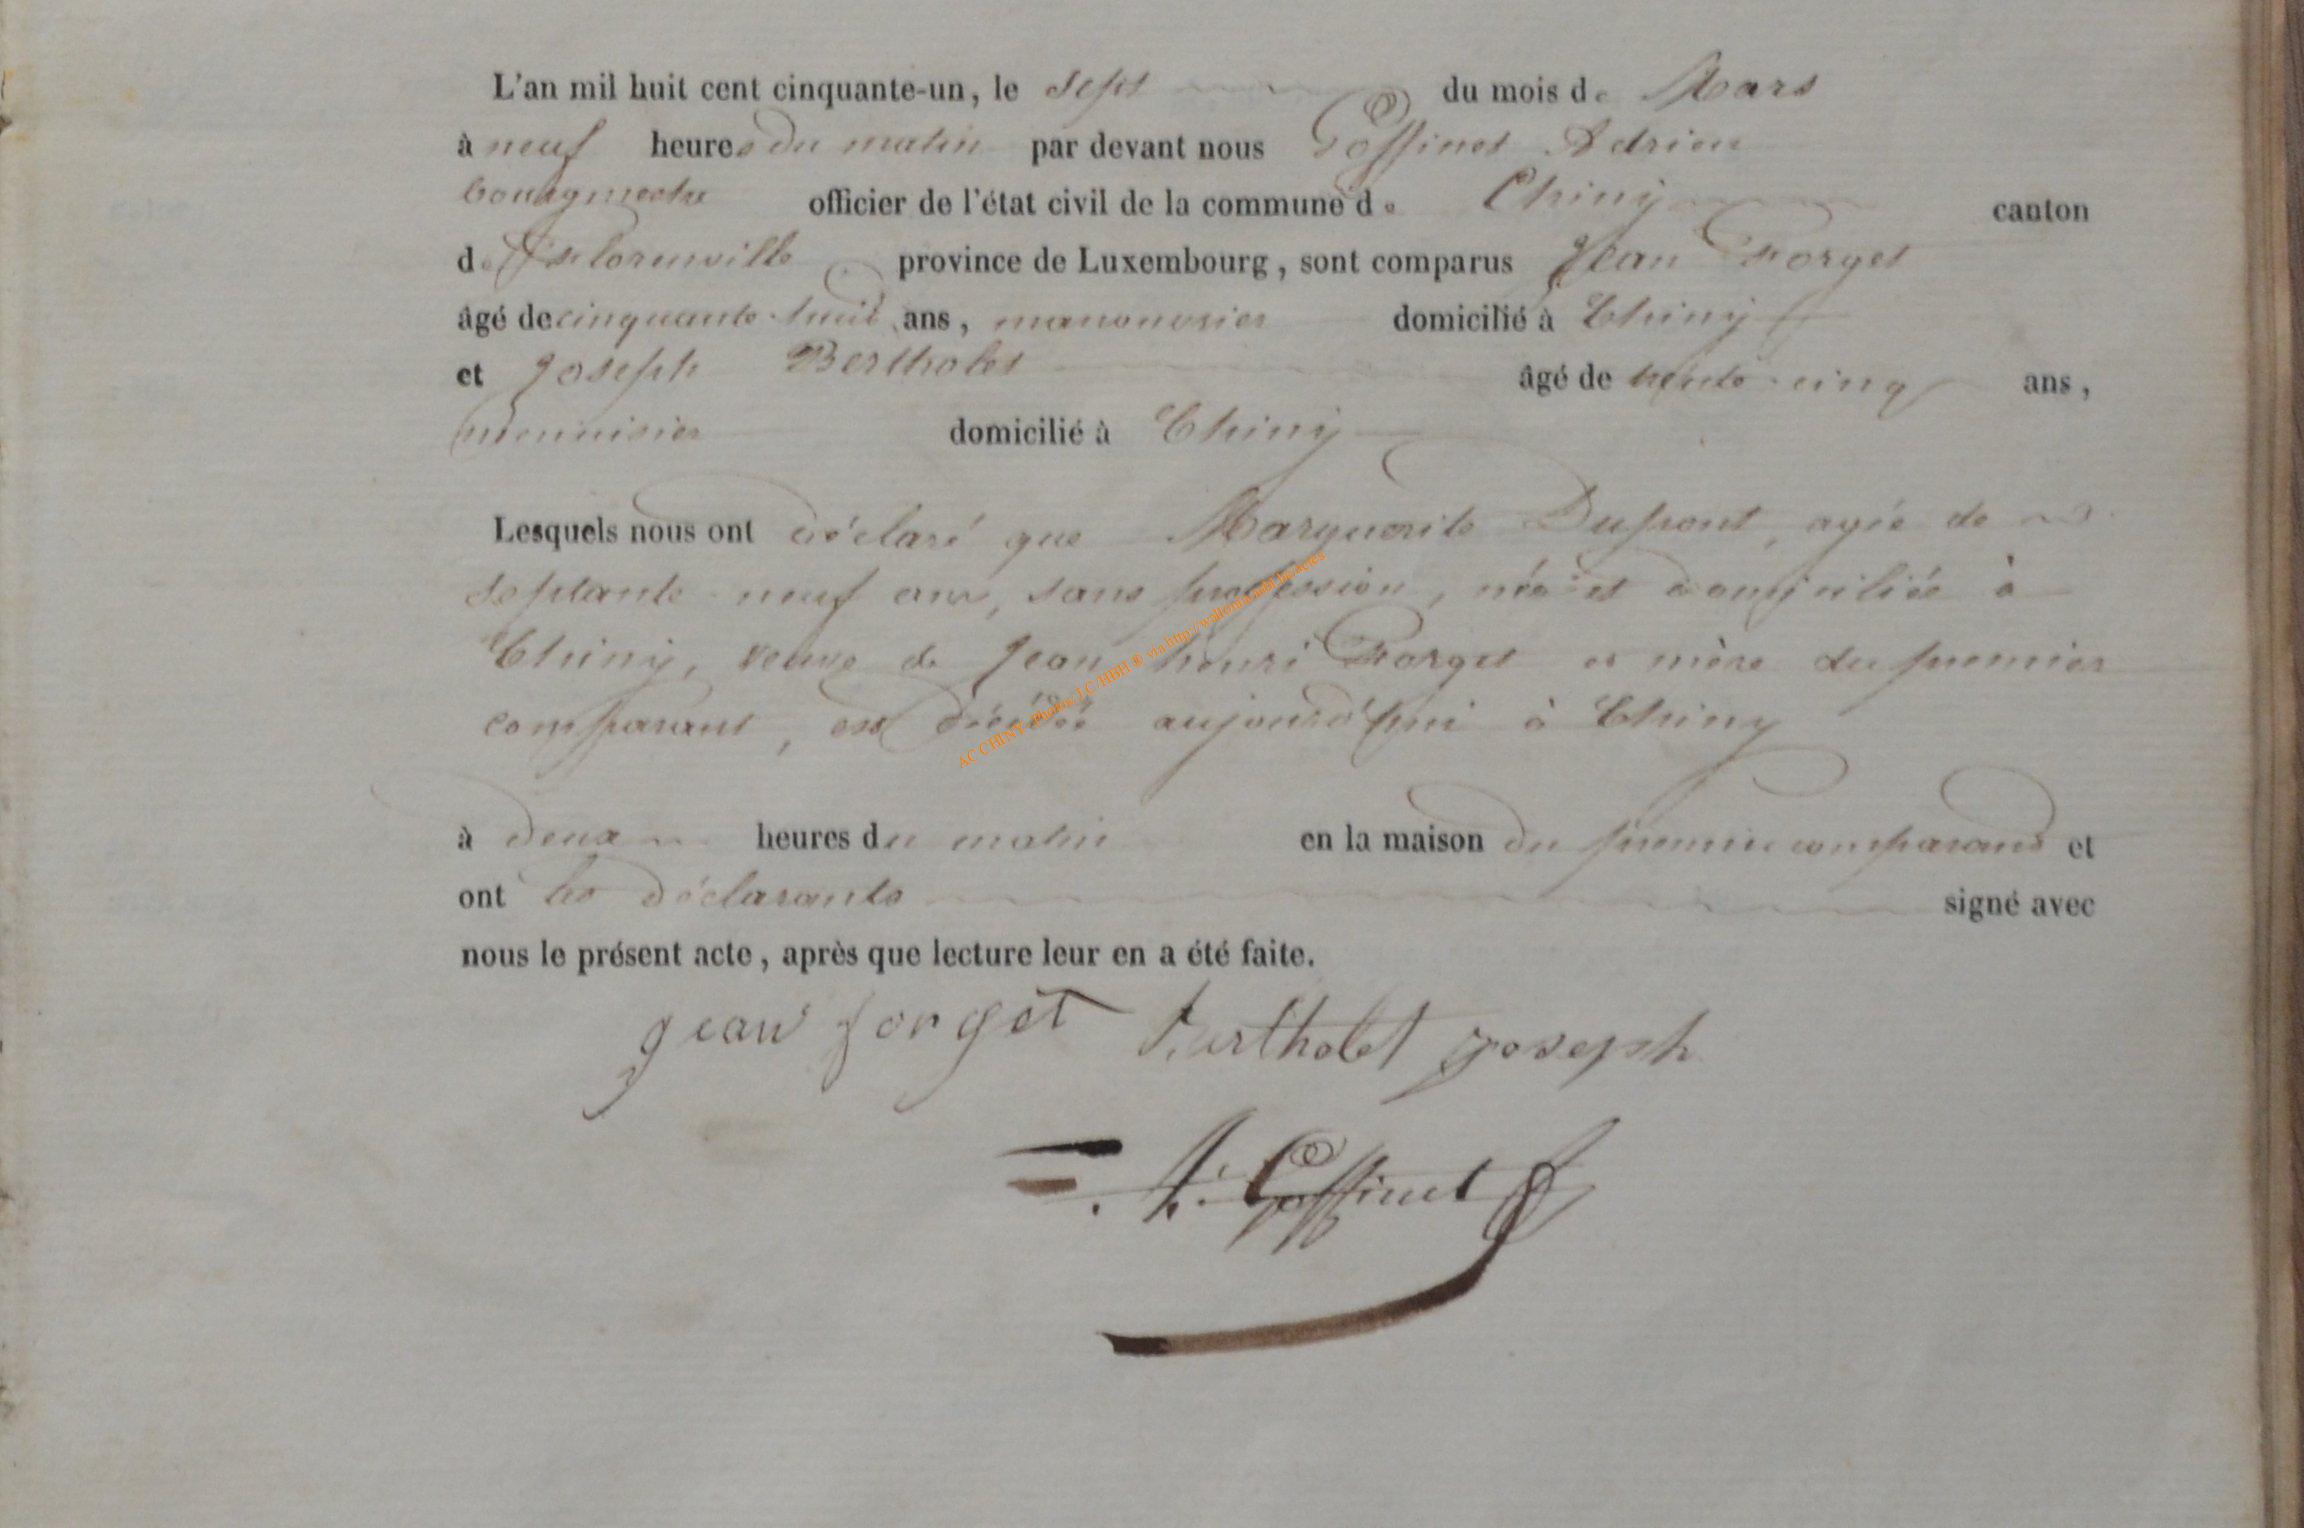 L'an mil huit cent cinquante-un, le sept du mois de Mars
à neuf heures du matin par devant nous Goffinet Adrien
bourgmestre officier de l'état civil de la commune de Chiny canton
de florenville province de Luxembourg, sont comparus Jean Forget
âgé de cinquante-huit ans, manouvrier domicilié à Chiny
et Joseph Bertholet âgé de trente-cinq ans,
menuisier domicilié à Chiny
Lesquels nous ont déclaré que Marguerite Dupont, agée de
septante-neuf ans, sans profession, née et domiciliée à
Chiny, veuve de Jean henri Forget et mère du premier
comparant, est décédée aujourd'hui à Chiny
à deux heures du matin en la maison du premier comparant et
ont les déclarants signé avec
nous le présent acte, après que lecture leur en a été faite.
jean forget Bertholet joseph
A. Goffinet
AC CHINY - Photos J.C. HBH ® via http://wallonia.asbl.be/actes